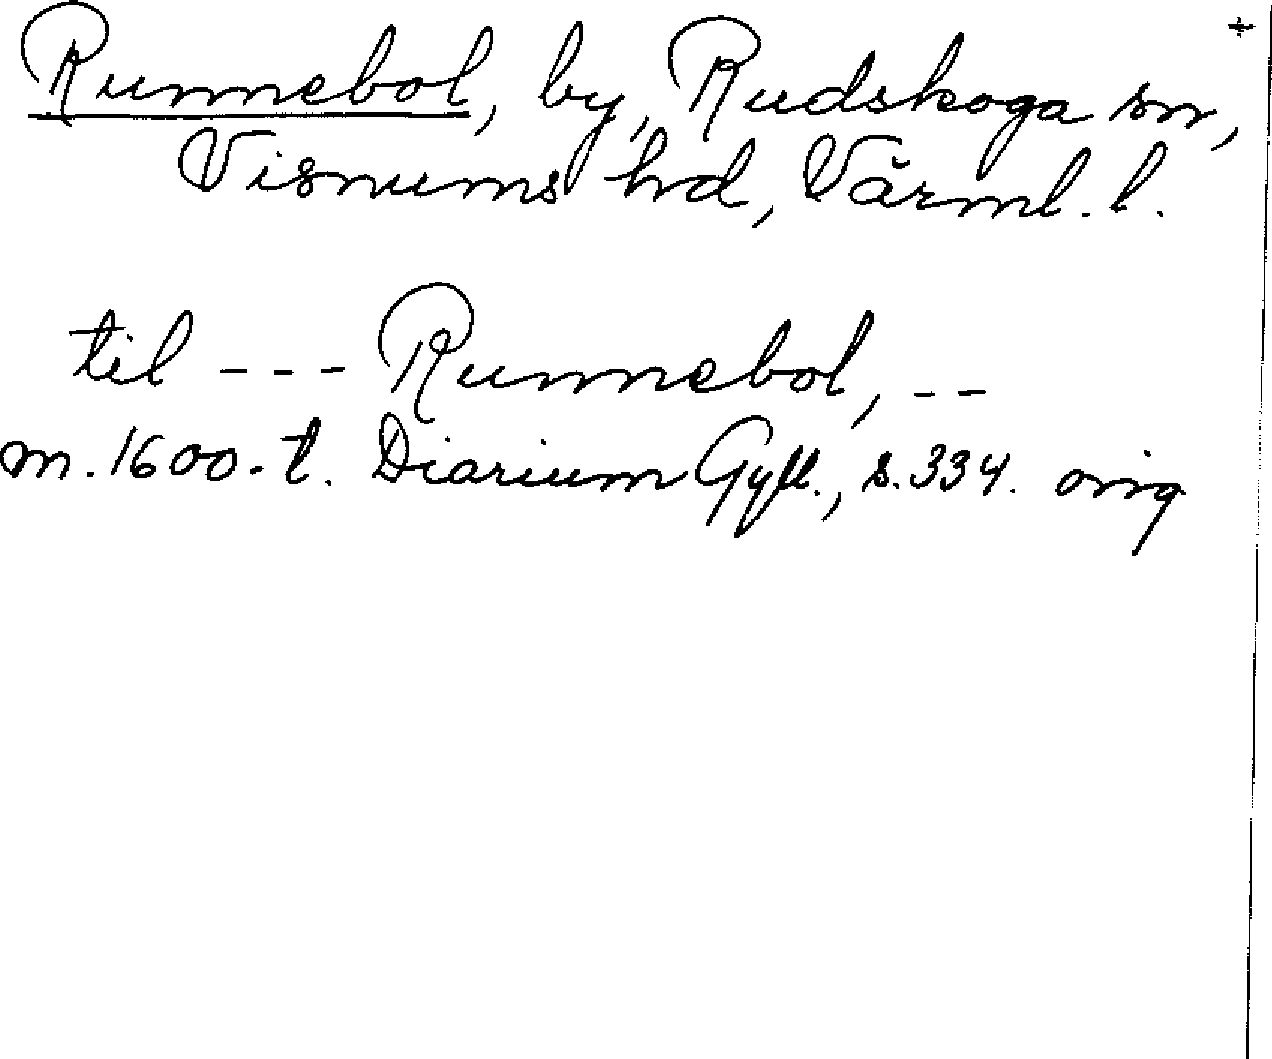 Runnebol, by, Rudskoga sn, +
Visnums hd, Värml. l.
til --- Runnebol, --
m. 1600-t. Diarium Gyll., s. 334. orig